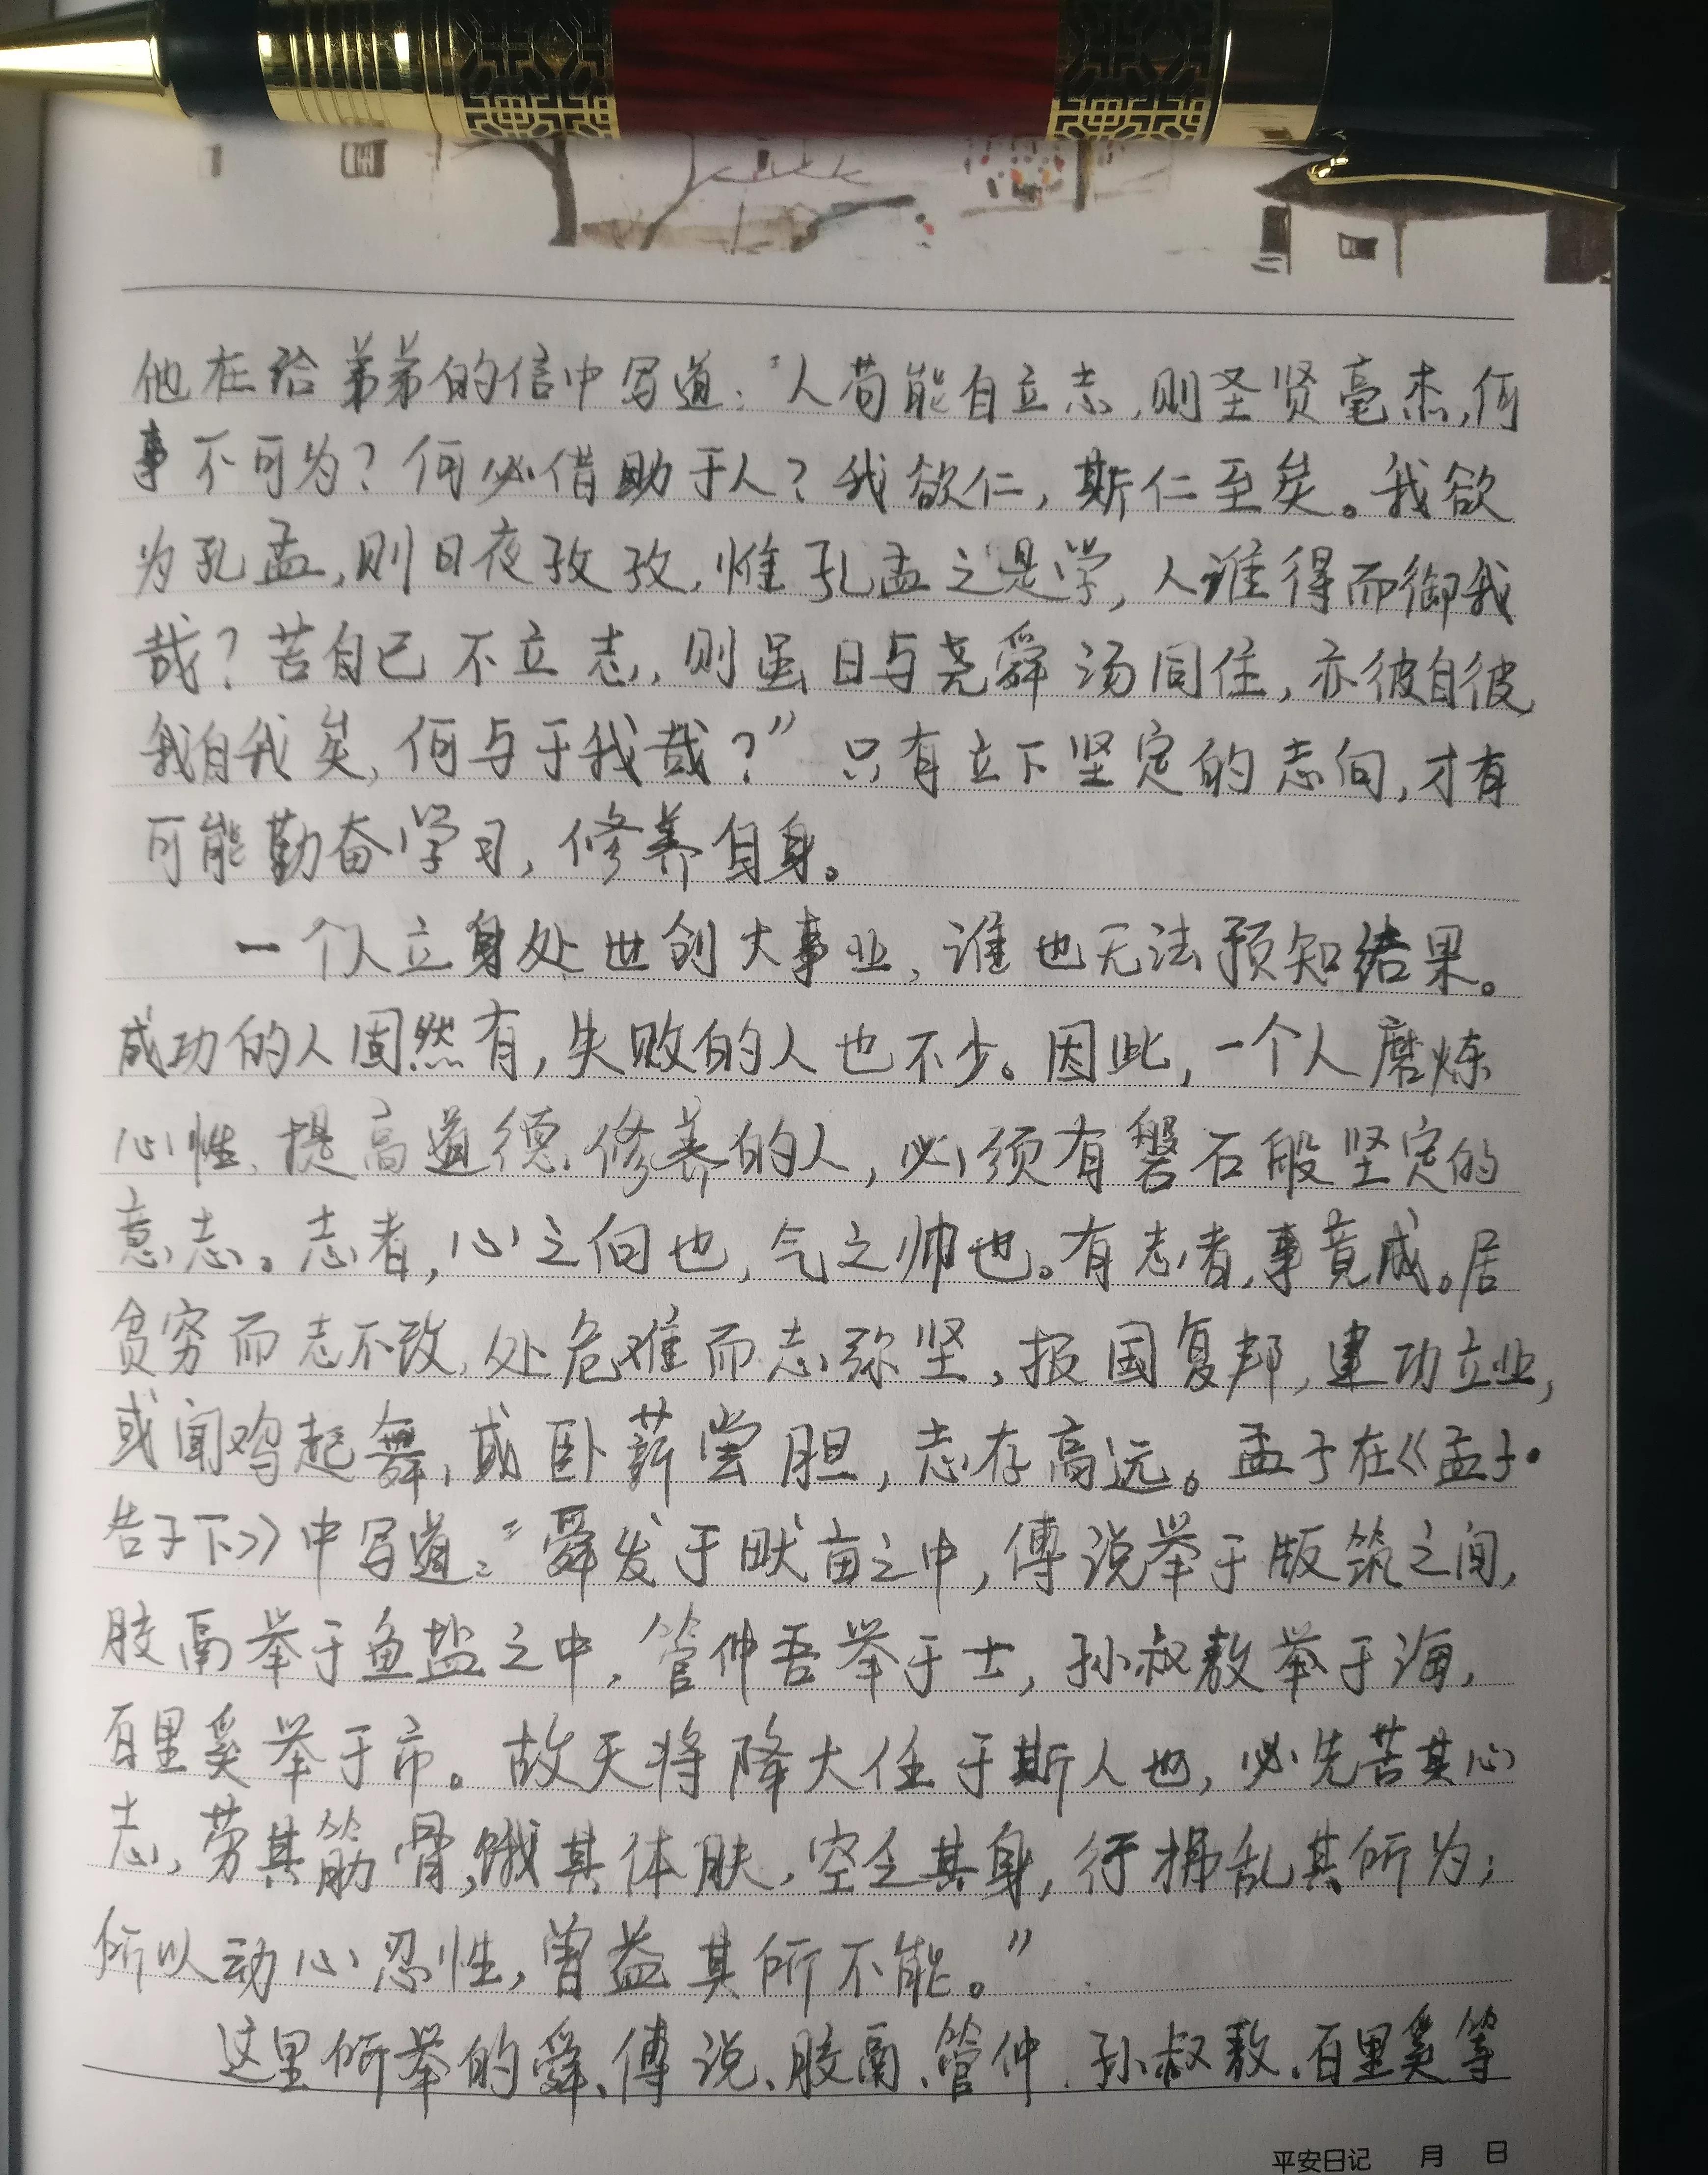 他在给弟弟的信中写道：“人苟能自立志，则圣贤毫杰，何
事不可为？何必借助于人？我欲仁，斯仁至矣。我欲
为孔孟，则日夜孜孜，惟孔孟之是学，人谁得而御我
哉？苦自己不立志，则虽日与尧舜汤同住，亦彼自彼，
我自我矣，何与于我哉？”只有立下坚定的志向，才有
可能勤奋学习，修养自身。
一个人立身处世创大事业，谁也无法预知结果。
成功的人固然有，失败的人也不少。因此，一个人磨炼
心性、提高道德修养的人，必须有磐石般坚定的
意志。志者，心之向也，气之帅也。有志者，事竟成。居
贫穷而志不改，处危难而志弥坚，报国复邦，建功立业，
或闻鸡起舞，或卧薪尝胆，志存高远。孟子在《孟子·
告子下》中写道：“舜发于畎亩之中，傅说举于版筑之间，
胶鬲举于鱼盐之中，管仲吾举于士，孙叔敖举于海，
百里奚举于市。故天将降大任于斯人也，必先苦其心
志，劳其筋骨，饿其体肤，空乏其身，行拂乱其所为；
所以动心忍性，曾益其所不能。”
这里所举的舜、傅说、胶鬲、管仲、孙叔敖、百里奚等
平安日记 月 日